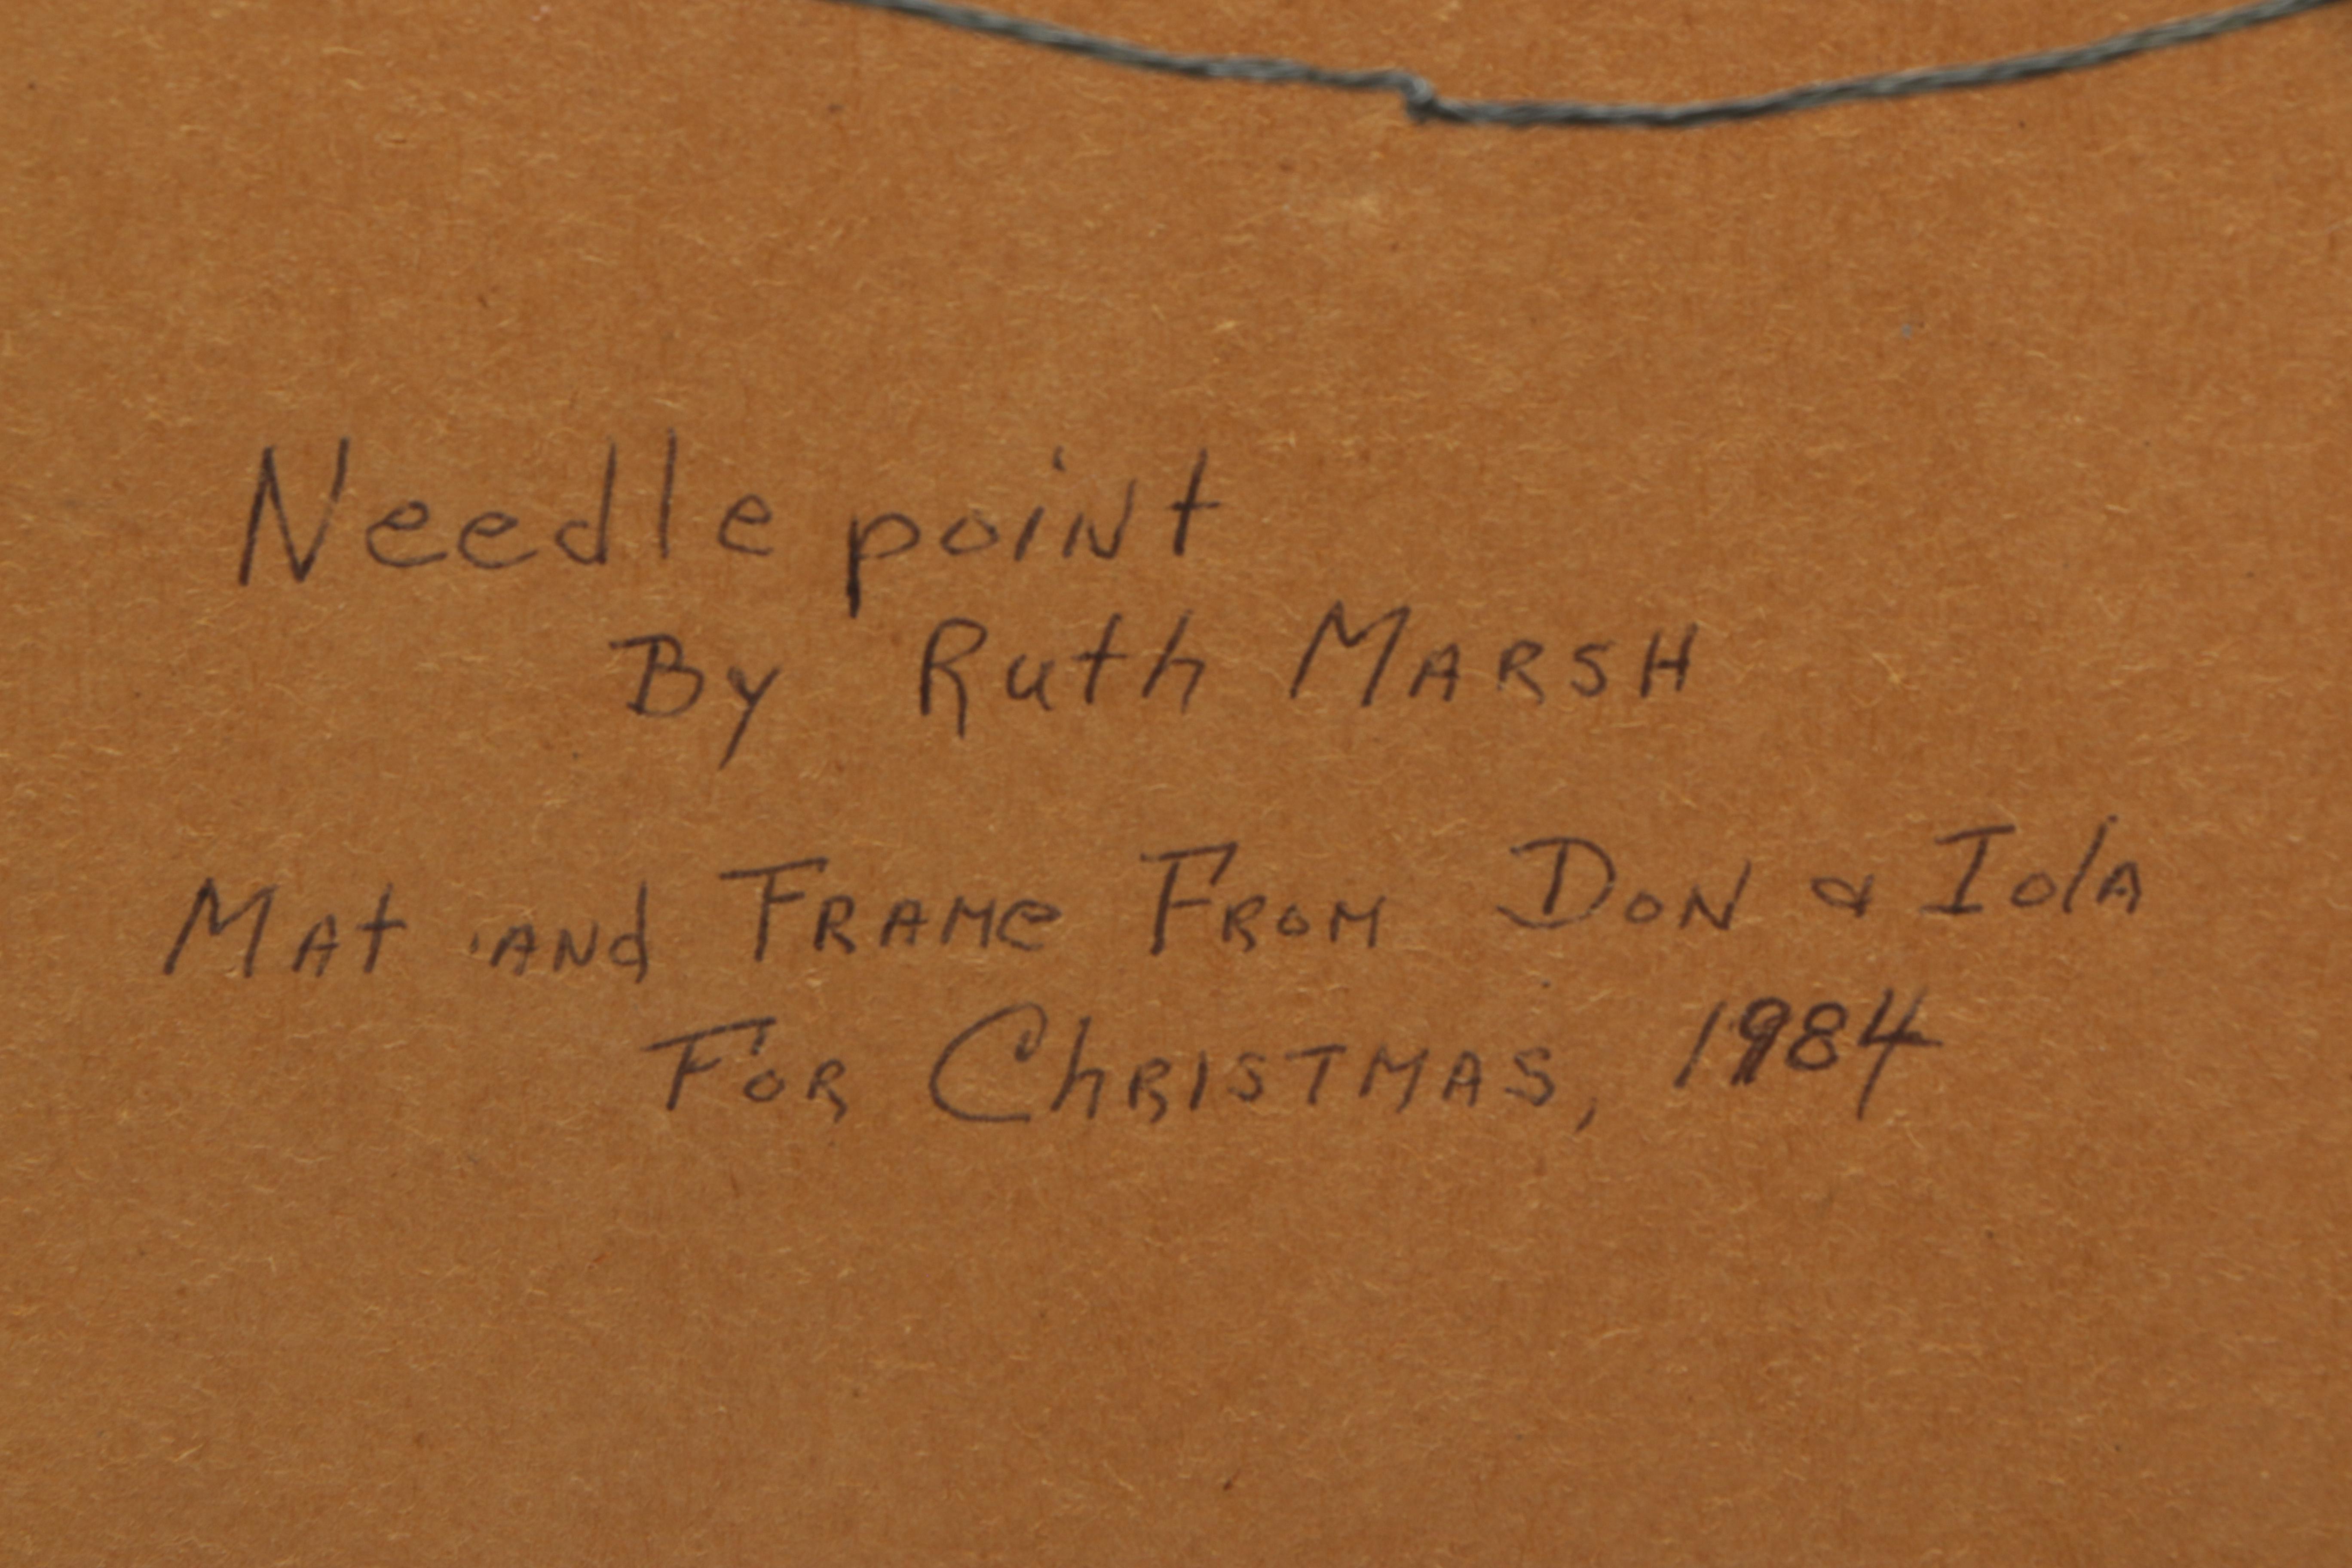 Needle point
By Ruth MARSH
MAt ANd FRAMe FROM DON & IolA
FOR ChRISTMAS, 1984